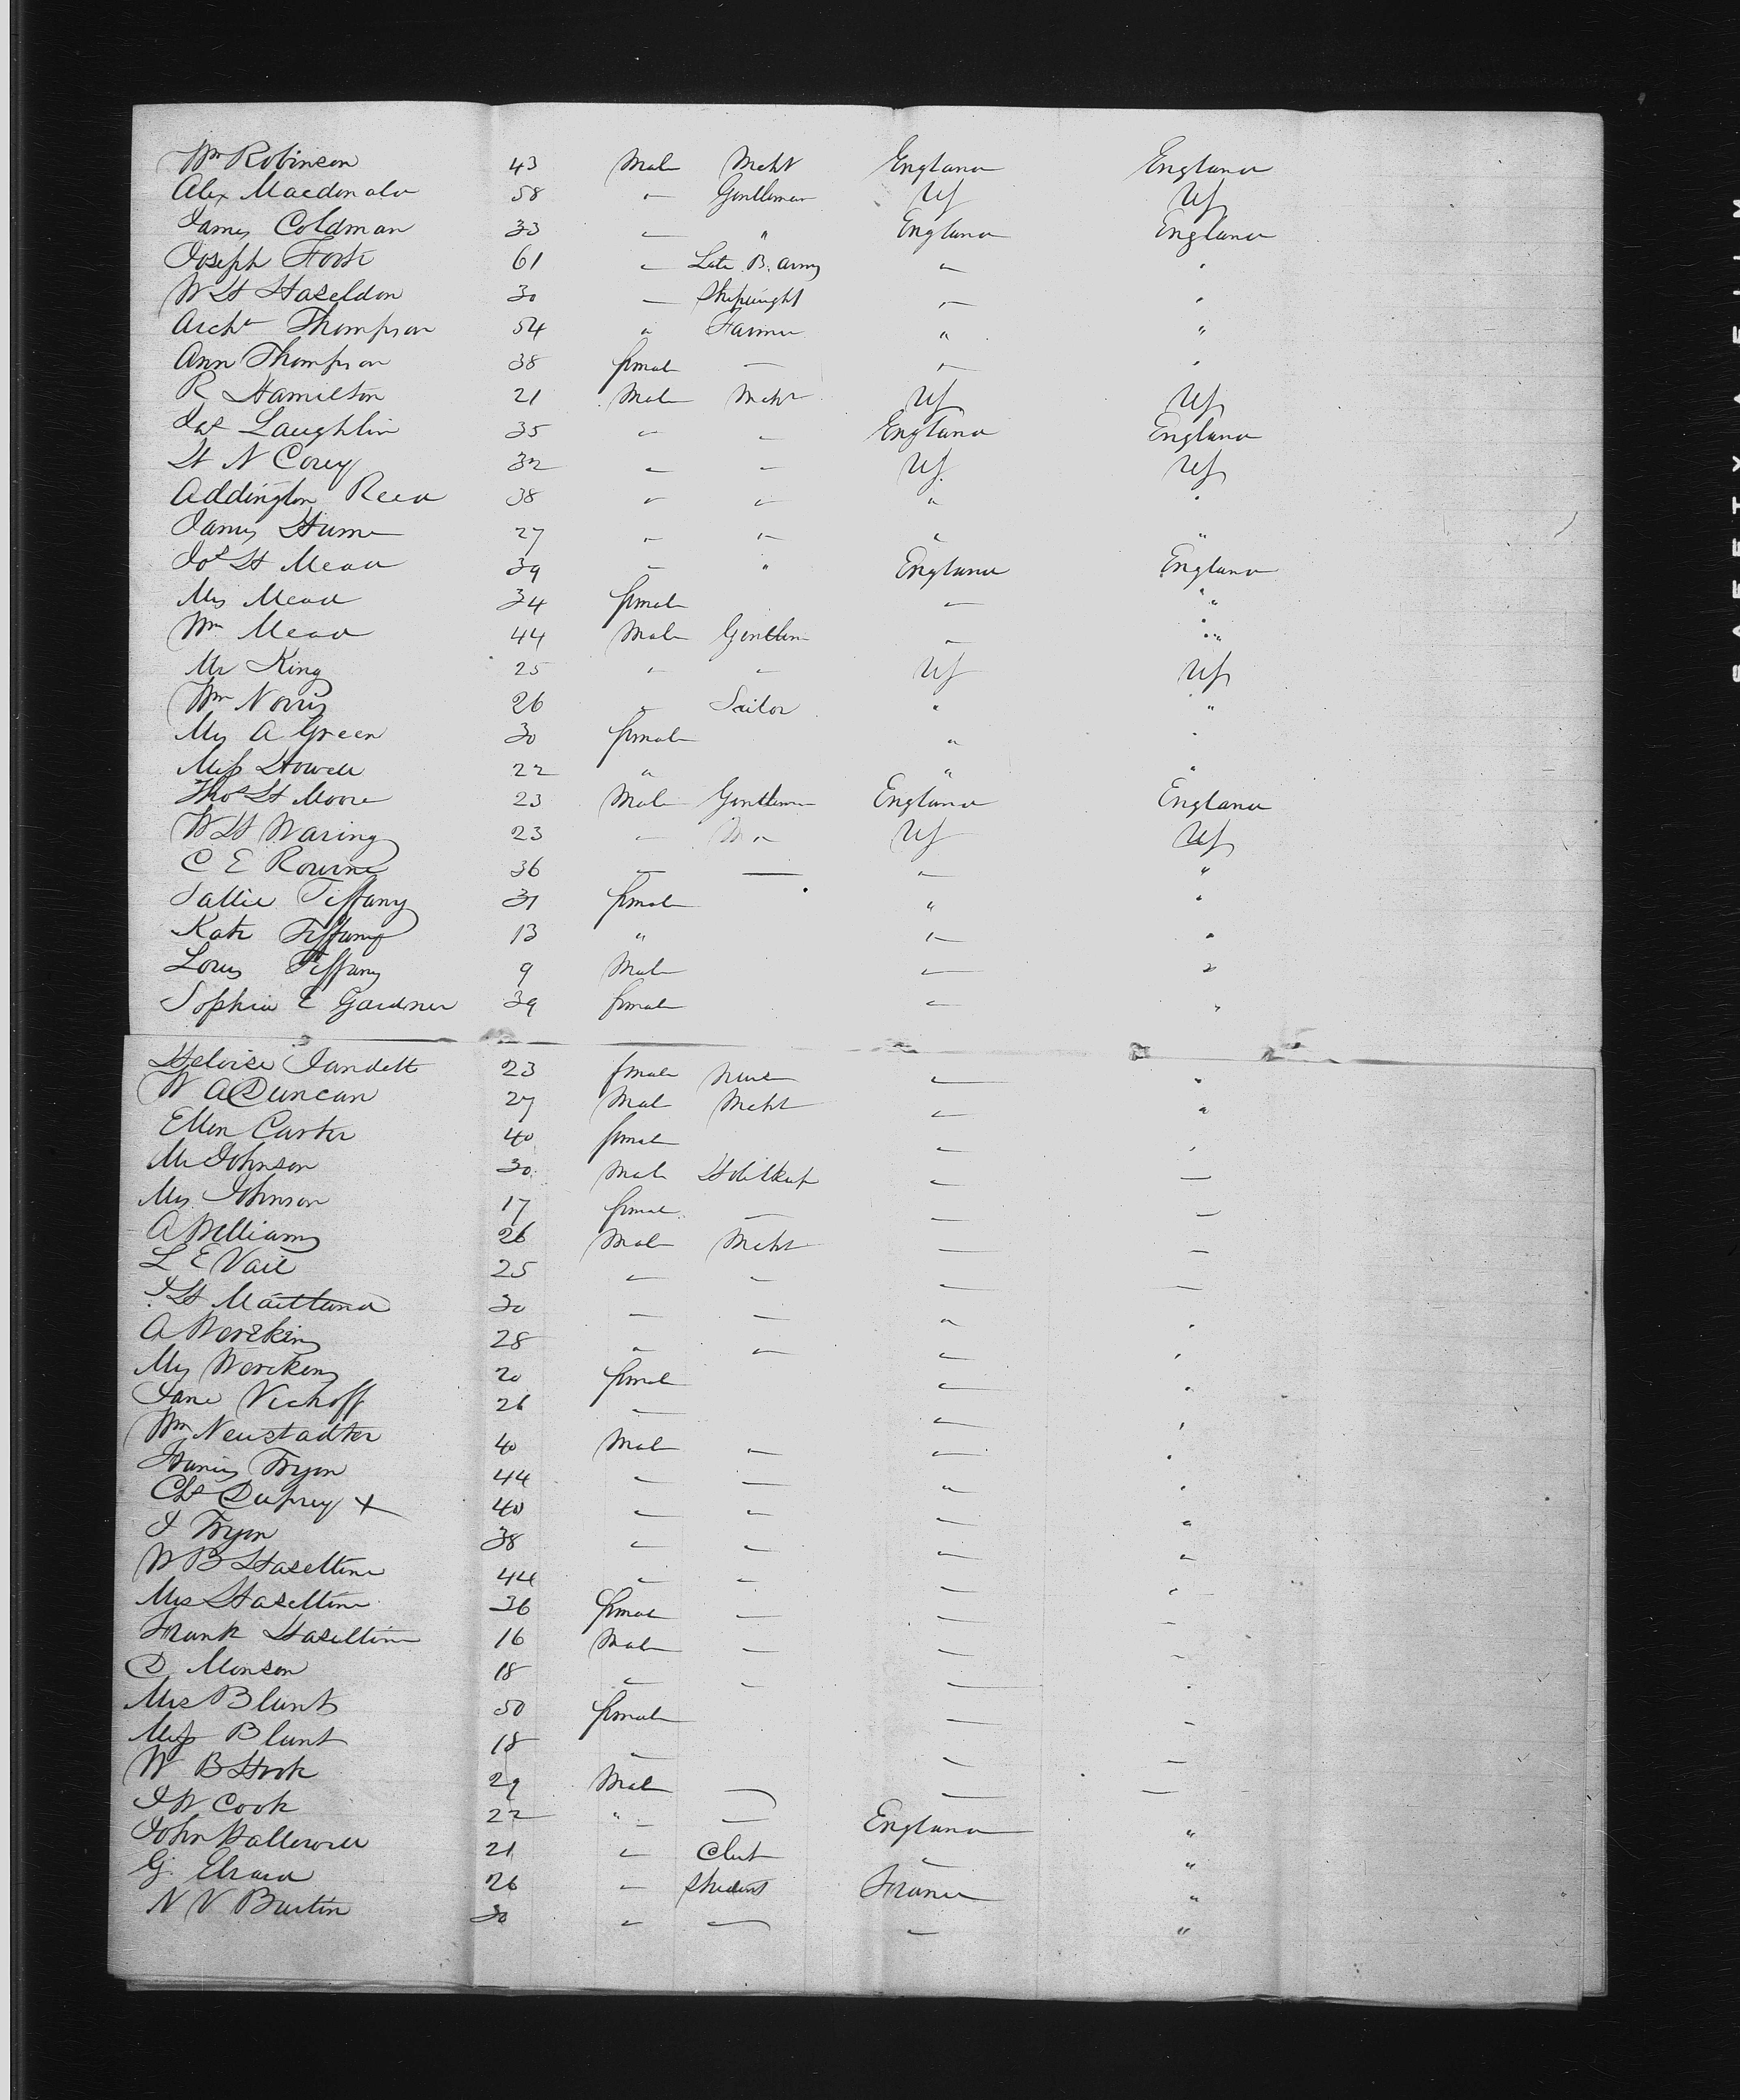 Wm Robinson 43 Male Mcht England England
Alex Macdonald 58 " Gentleman US US
James Coldman 33 " " England England
Joseph 61 " Late B. Army " "
W H Haseldon 30 " Shipwright " "
Archd Thompson 54 " Farmer " "
Ann Thompson 38 female — " "
R Hamilton 21 Male Mcht US US
Jas Laughlin 35 " " England England
H N Corey 32 " " US US
Addington Reed 38 " " " "
James Hume 27 " " " "
Jos H Mead 39 " " England England
Mrs Mead 34 female " "
Wm Mead 44 Male Gentlem " "
Mr King 25 " " US US
Wm Norris 26 " Sailor " "
Mrs A Green 30 female " "
Miss Howell 22 " " "
Thos H Moore 23 Male Gentleman England England
W H Waring 23 " US US
C E 36 " — " "
Sallie Tiffany 31 female " "
Kate Tiffany 13 " " "
Louis Tiffany 9 Male " "
Sophia E Gardner 39 female " "
Heloise 23 female nurse " "
W A Duncan 27 Male Mcht " "
Ellen Carter 40 female " "
Mr Johnson 30 Male Hotelkeep " —
Mrs Johnson 17 female — — —
A Williams 26 Male Mcht — —
L E Vail 25 " " — —
J H Maitland 30 — — " "
A 28 " " " "
Mrs 20 female " "
Jane 26 — " "
Wm Neustadter 40 Male " " "
Francis Tryon 44 " — " "
Chs Duprey + 40 " " " "
J Tryon 38 " " " "
W B Haseltine 44 " " — "
Mrs Haseltine 36 female — — —
Frank Haseltine 16 Male — — —
D Monson 18 " " — "
Mrs Blunt 50 female — —
Miss Blunt 18 — — —
W B Hook 29 Male — — —
J W Cook 22 " — England "
John Hallowell 21 " Clerk " "
G. 26 " Student France "
N V 30 " — — "
SAFETY